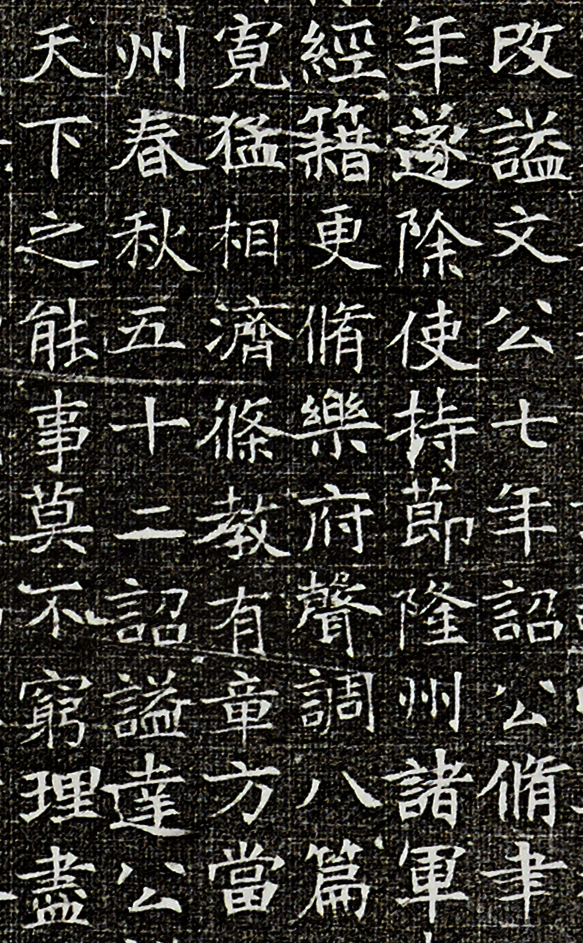 改謚文公七年詔公脩聿
年遂除使持節隆州諸軍
經籍更脩樂府聲調八篇
寬猛相濟條教有章方當
州春秋五十二詔謚達公
天下之能事莫不窮理盡